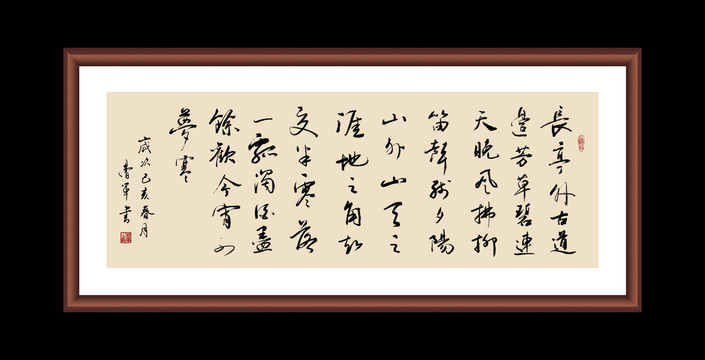 長亭外古道
邊芳草碧連
天晚风拂柳
笛聲残夕陽
山外山天之
涯地之角知
交半零落
一瓢濁酒盡
餘歡今宵別
夢寒
歲次己亥春月